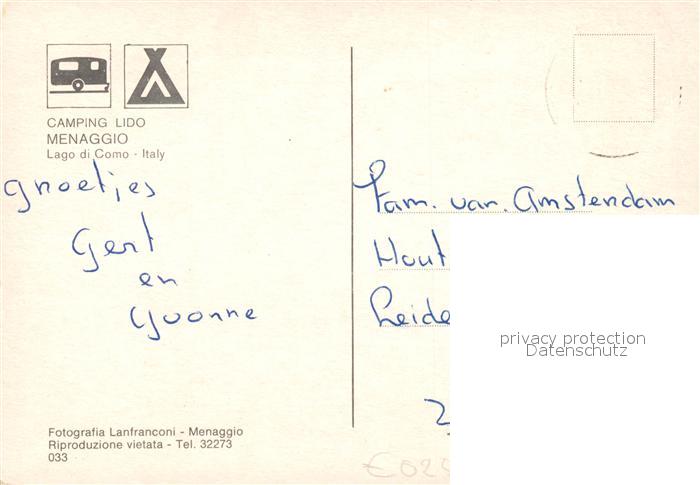 CAMPING LIDO
MENAGGIO
Lago di Como - Italy
groetjes
Gert
en
Yvonne
Fam. van. Amsterdam
Hout
Leide
privacy protection
Datenschutz
2
Fotografia Lanfranconi - Menaggio
Riproduzione vietata - Tel. 32273
033